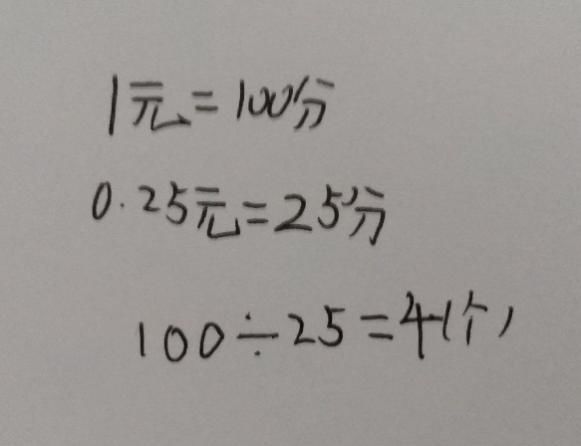 1元=100分
0.25元=25分
100÷25=4(个)